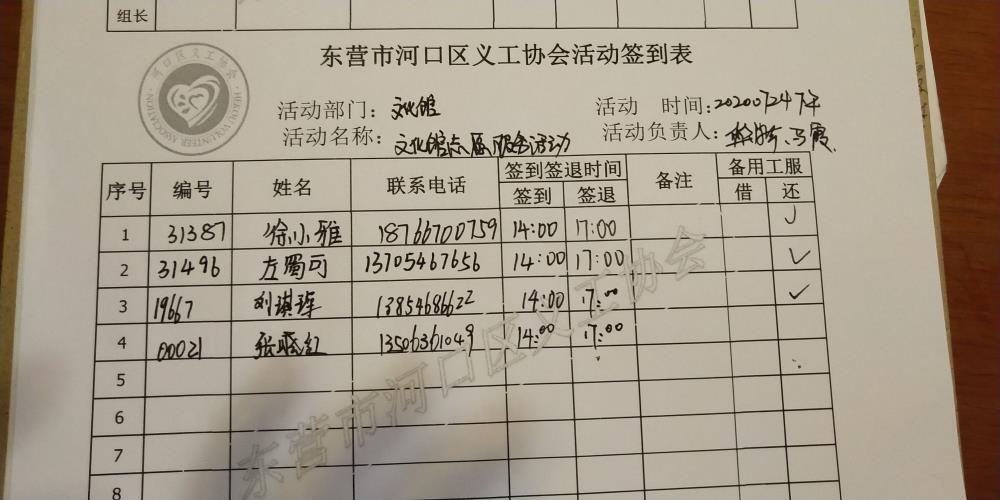 组长
东营市河口区义工协会活动签到表
河口区义工协会
HEKOU VOLUNTEER ASSOCIATION
活动部门：文化馆 活动 时间：20200724下午
活动名称：文化馆志愿服务活动 活动负责人：马霞
序号 编号 姓名 联系电话 签到签退时间 备注 备用工服
签到 签退 借 还
1 31387 徐小雅 18766700759 14:00 17:00 ✓
2 31496 左蜀可 13705467656 14:00 17:00 ✓
3 19667 刘琪琿 13854686622 14:00 17:00 ✓
4 00021 张晓红 13506361049 14:00 17:00
5
6
7
8
东营市河口区义工协会